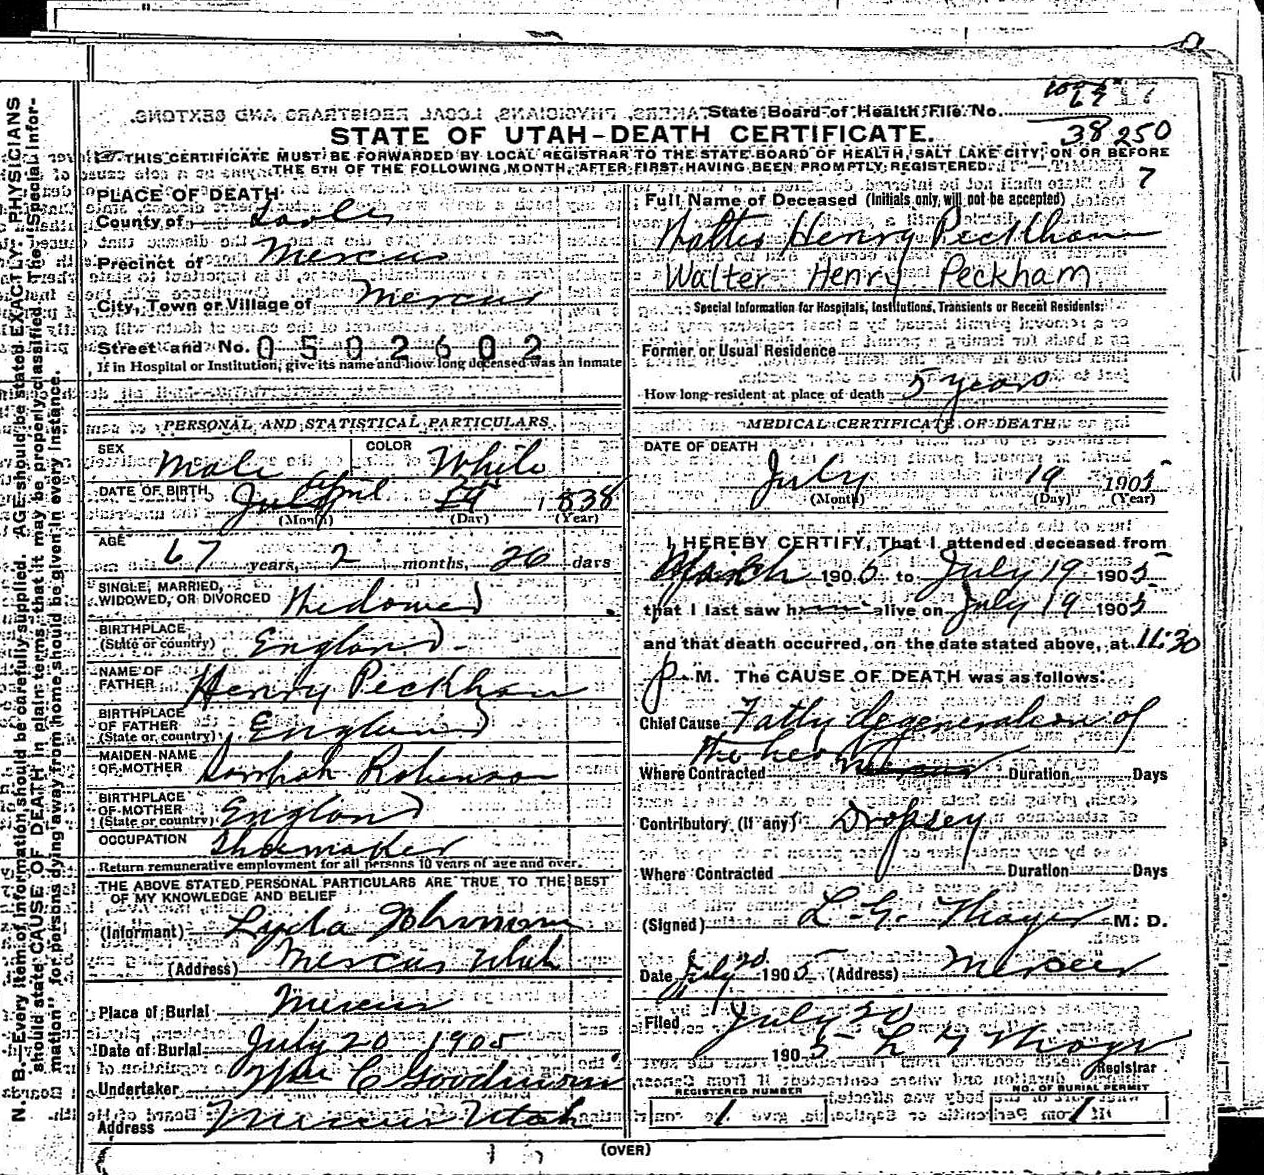 State Board of Health File No. 17
67
38250
7
STATE OF UTAH-DEATH CERTIFICATE.
THIS CERTIFICATE MUST BE FORWARDED BY LOCAL REGISTRAR TO THE STATE BOARD OF HEALTH, SALT LAKE CITY, ON OR BEFORE
THE 5TH OF THE FOLLOWING MONTH, AFTER FIRST HAVING BEEN PROMPTLY REGISTERED.
N. B.—Every item of information should be carefully supplied. AGE should be stated EXACTLY. PHYSICIANS
should state CAUSE OF DEATH in plain terms, that it may be properly classified. The "Special Infor-
mation" for persons dying away from home should be given in every instance.
PLACE OF DEATH
County of Tooele
Precinct of Mercur
City, Town or Village of Mercur
Street and No. 0502602
If in Hospital or Institution, give its name and how long deceased was an inmate
PERSONAL AND STATISTICAL PARTICULARS
SEX Male COLOR White
DATE OF BIRTH July April 29 1838
(Month) (Day) (Year)
AGE 67 years, 2 months, 20 days
SINGLE, MARRIED,
WIDOWED, OR DIVORCED Widowed
BIRTHPLACE
(State or country) England
NAME OF
FATHER Henry Peckham
BIRTHPLACE
OF FATHER
(State or country) England
MAIDEN NAME
OF MOTHER Sarah Robinson
BIRTHPLACE
OF MOTHER
(State or country) England
OCCUPATION Shoemaker
Return remunerative employment for all persons 10 years of age and over.
THE ABOVE STATED PERSONAL PARTICULARS ARE TRUE TO THE BEST
OF MY KNOWLEDGE AND BELIEF
(Informant) Lyda Johnson
(Address) Mercur Utah
Place of Burial Mercur
Date of Burial July 20 1905
Undertaker Wm C Goodwin
Address Mercur Utah
Full Name of Deceased (Initials only, will not be accepted)
Walter Henry Peckham
Walter Henry Peckham
Special Information for Hospitals, Institutions, Transients or Recent Residents:
Former or Usual Residence
How long resident at place of death 5 years
MEDICAL CERTIFICATE OF DEATH
DATE OF DEATH
July 19 1905
(Month) (Day) (Year)
I HEREBY CERTIFY, That I attended deceased from
March 1905 to July 19 1905
that I last saw him alive on July 19 1905
and that death occurred, on the date stated above, at 11:30
P. M. The CAUSE OF DEATH was as follows:
Chief Cause Fatty degeneration of
the heart
Where Contracted Mercur Duration Days
Contributory (If any) Dropsey
Where Contracted Duration Days
(Signed) L. G. Thayer M. D.
Date July 20 1905 (Address) Mercur
Filed July 20
1905 L G Thayer
Registrar
REGISTERED NUMBER
1
NO. OF BURIAL PERMIT
1
(OVER)